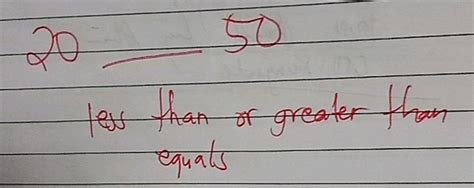 20 ___ 50
less than or greater than
equals